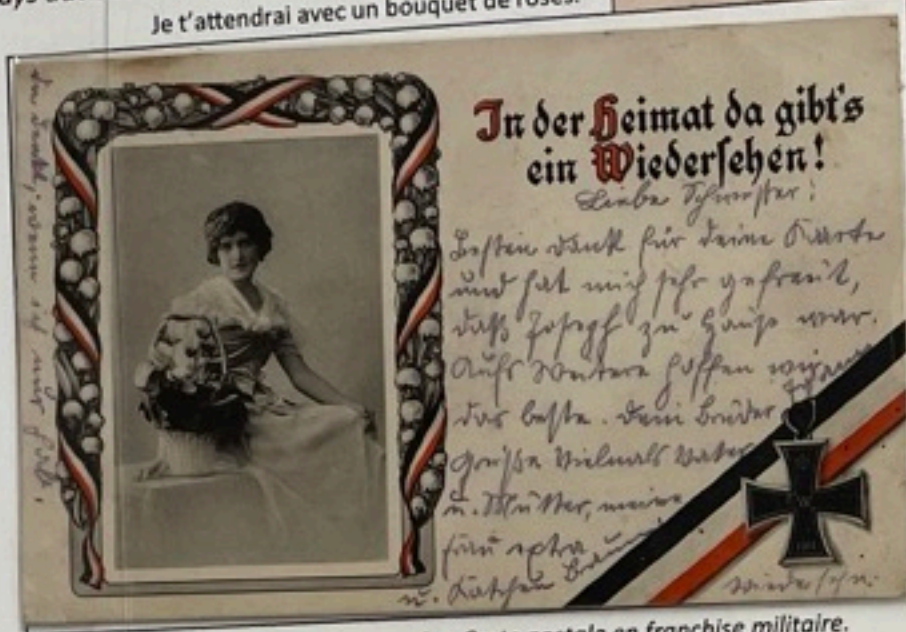 Je t'attendrai avec un bouquet de roses.
In der Heimat da gibt's
ein Wiedersehen!
Liebe Schwester!
Besten Dank für deine Karte
und hat mich sehr gefreut,
daß Joseph zu Hause war.
Aufs Weitere hoffen wir
das beste. Dein Bruder
Grüße Vielmals Vater
u. Mutter, meine
Frau extra
u. Kätchen
Wiedersehn.
en franchise militaire.